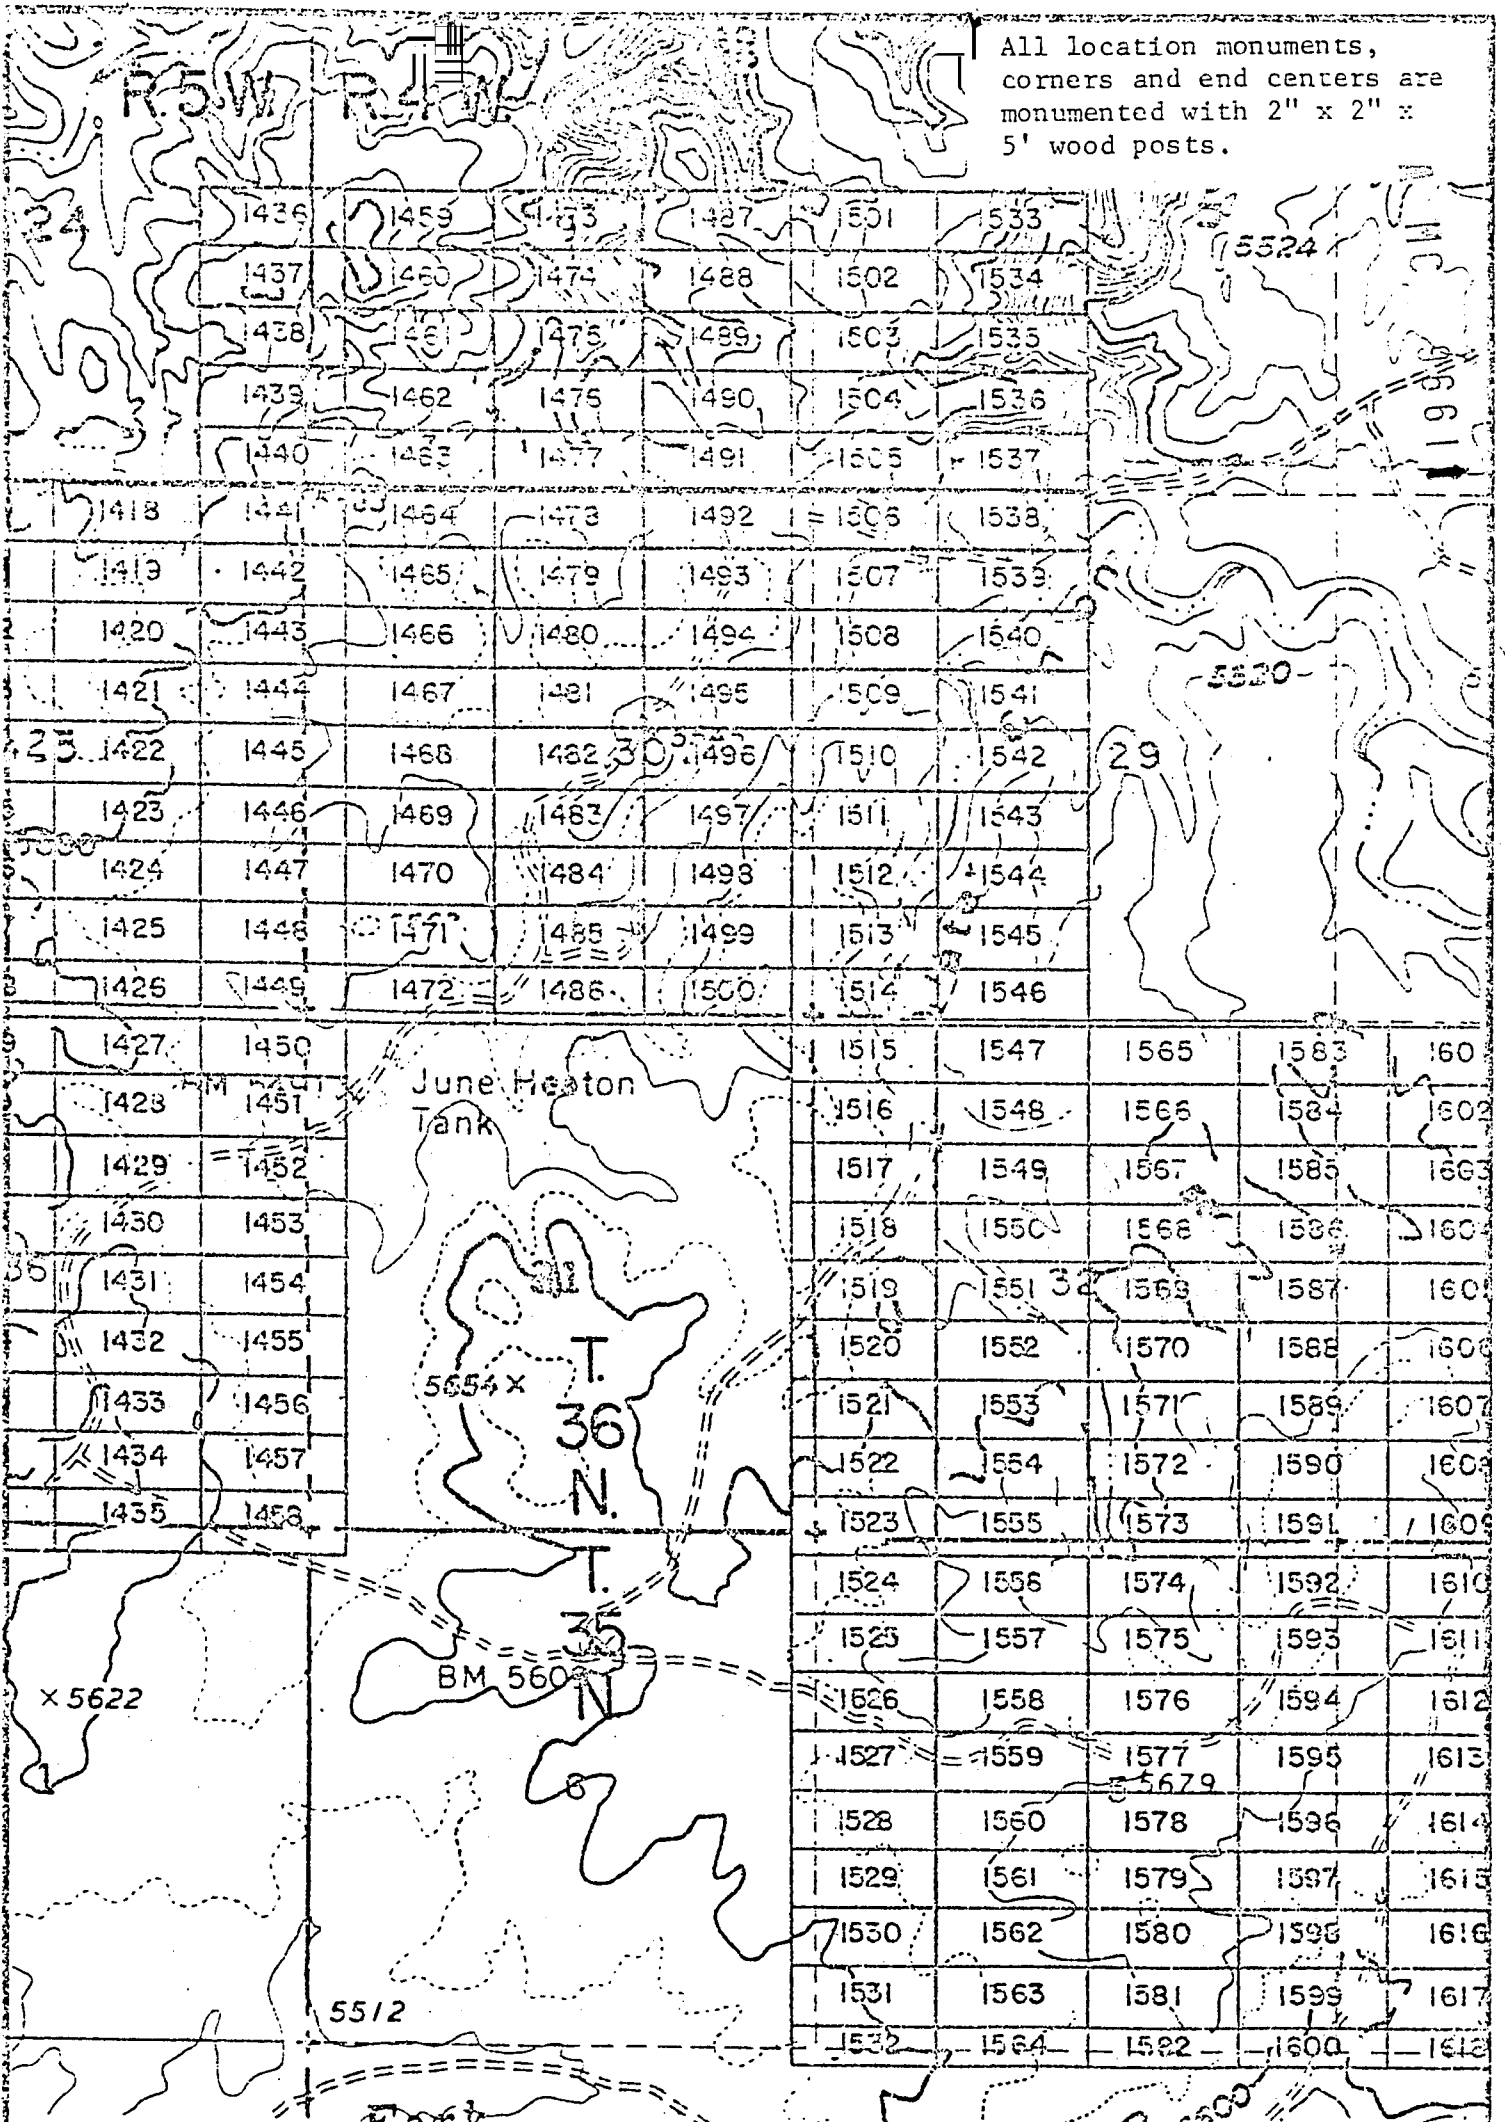 All location monuments,
corners and end centers are
monumented with 2" x 2" x
5' wood posts.
R.5W. R.4W.
24 1436 1459 1473 1487 1501 1533 5524
1437 1460 1474 1488 1502 1534
1438 1461 1475 1489 1503 1535
1439 1462 1476 1490 1504 1536
1996
1440 1463 1477 1491 1505 1537
1418 1441 1464 1478 1492 1506 1538
1419 1442 1465 1479 1493 1507 1539
1420 1443 1466 1480 1494 1508 1540
5520
1421 1444 1467 1481 1495 1509 1541
25 1422 1445 1468 1482 30 1496 1510 1542 29
1423 1446 1469 1483 1497 1511 1543
1424 1447 1470 1484 1498 1512 1544
1425 1448 1471 1485 1499 1513 1545
1426 1449 1472 1486 1500 1514 1546
1427 1450 1515 1547 1565 1583 160
June Heaton
Tank
1428 1451 1516 1548 1566 1584 1602
1429 1452 1517 1549 1567 1585 1603
1430 1453 1518 1550 1568 1586 160
36 1431 1454 1519 1551 32 1569 1587 160
1432 1455 1520 1552 1570 1588 1606
T.
36
N.
5654 ×
1433 1456 1521 1553 1571 1589 1607
1434 1457 1522 1554 1572 1590 1608
1435 1458 1523 1555 1573 1591 1609
T.
35
N
1524 1556 1574 1592 1610
1525 1557 1575 1593 1611
BM 560
× 5622
1526 1558 1576 1594 1612
1 1527 1559 1577 1595 1613
6 5 5679
1528 1560 1578 1596 1614
1529 1561 1579 1597 1615
1530 1562 1580 1598 1616
1531 1563 1581 1599 1617
5512
1532 1564 1582 1600 1618